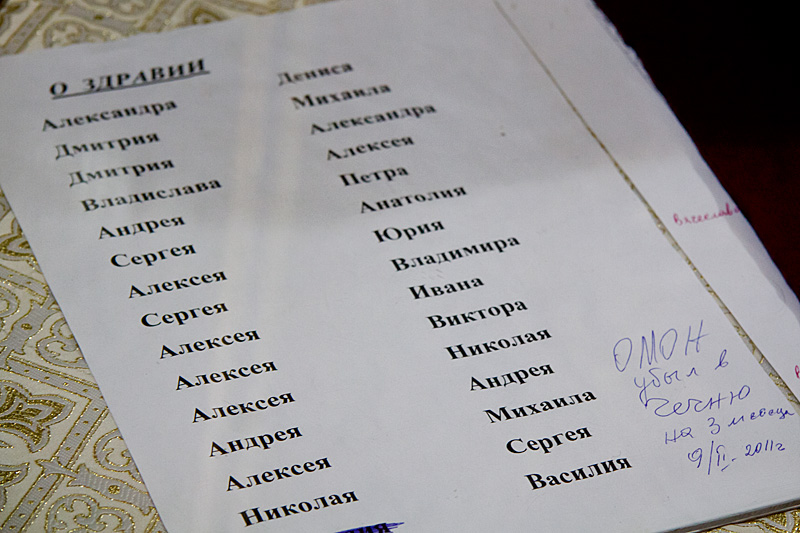 О ЗДРАВИИ
Александра
Дмитрия
Дмитрия
Владислава
Андрея
Сергея
Алексея
Сергея
Алексея
Алексея
Алексея
Андрея
Алексея
Николая
Дениса
Михаила
Александра
Алексея
Петра
Анатолия
Юрия
Владимира
Ивана
Виктора
Николая
Андрея
Михаила
Сергея
Василия
ОМОН
убыл в
Чечню
на 3 месяца
9/II-2011г
Вячеслава